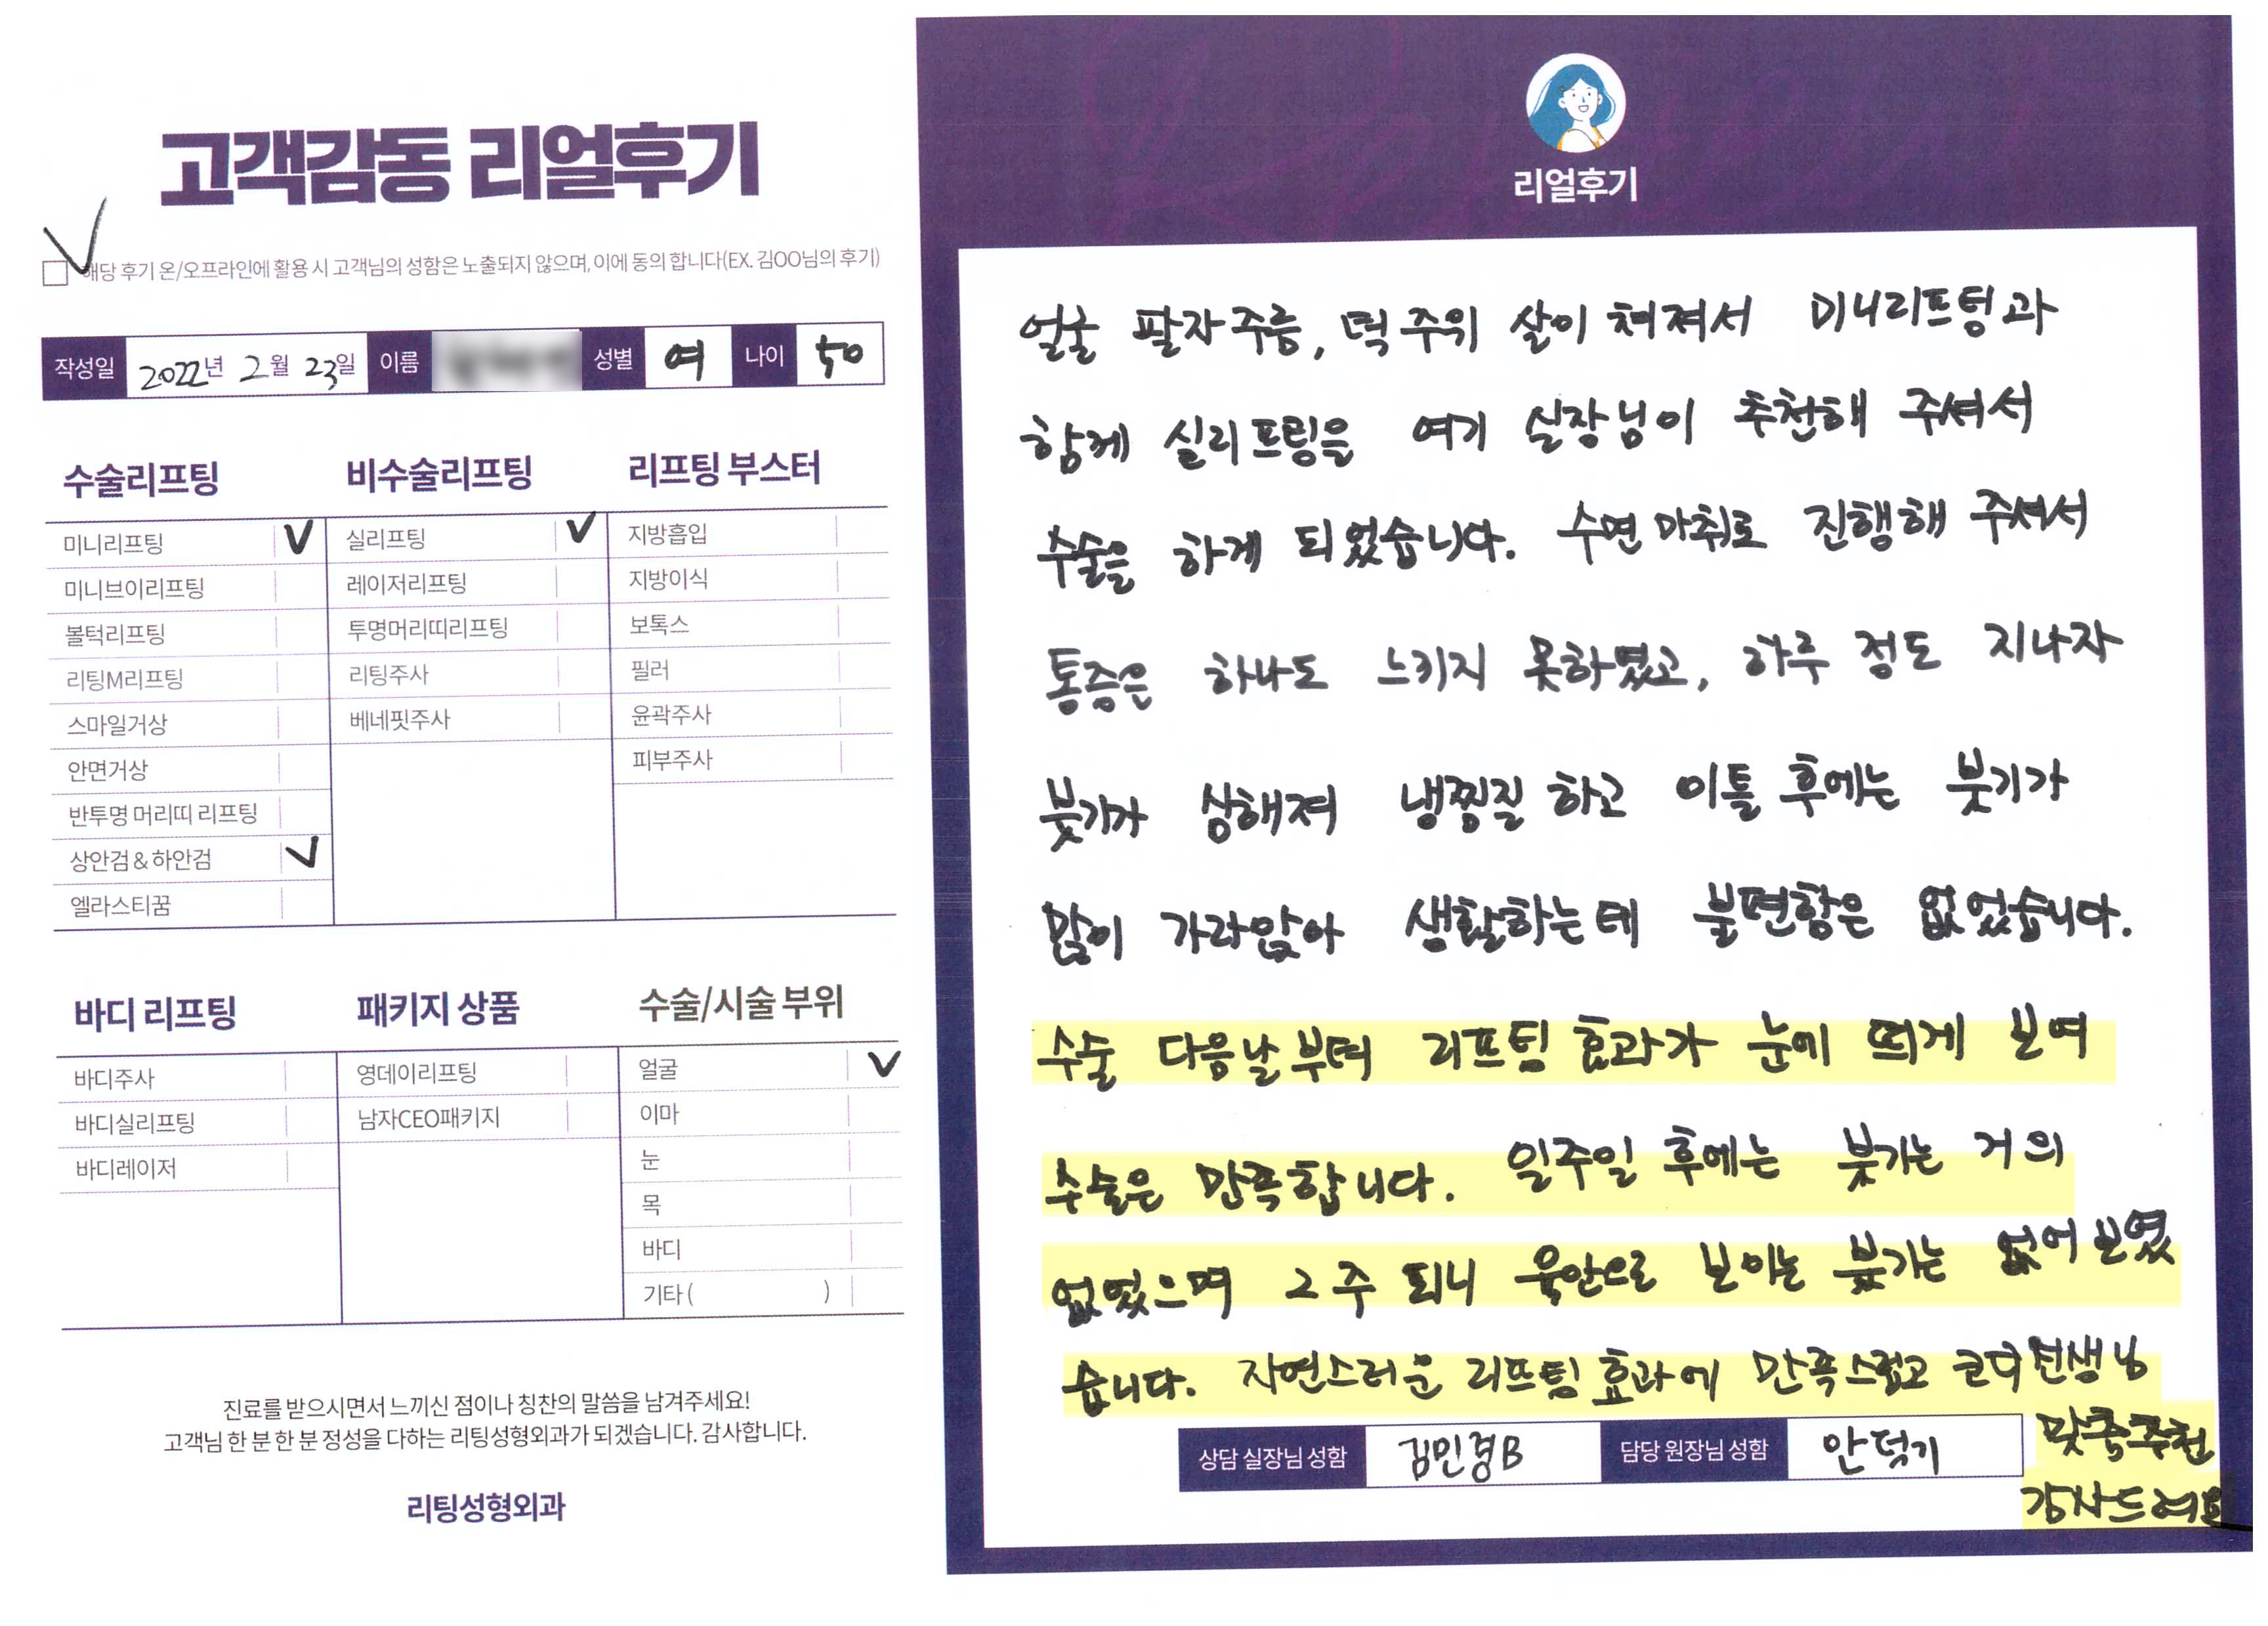 고객감동 리얼후기
해당 후기 온/오프라인에 활용 시 고객님의 성함은 노출되지 않으며, 이에 동의 합니다(EX. 김OO님의 후기)
작성일 2022년 2월 23일 이름 성별 여 나이 50
수술리프팅 비수술리프팅 리프팅 부스터
미니리프팅 V 실리프팅 V 지방흡입
미니브이리프팅 레이저리프팅 지방이식
볼턱리프팅 투명머리띠리프팅 보톡스
리팅M리프팅 리팅주사 필러
스마일거상 베네핏주사 윤곽주사
안면거상 피부주사
반투명 머리띠 리프팅
상안검 & 하안검 V
엘라스티꿈
바디 리프팅 패키지 상품 수술/시술 부위
바디주사 영데이리프팅 얼굴 V
바디실리프팅 남자CEO패키지 이마
바디레이저 눈
목
바디
기타 ( )
진료를 받으시면서 느끼신 점이나 칭찬의 말씀을 남겨주세요!
고객님 한 분 한 분 정성을 다하는 리팅성형외과가 되겠습니다. 감사합니다.
리팅성형외과
리얼후기
얼굴 팔자주름, 턱 주위 살이 쳐져서 미니리프팅과
함께 실리프팅을 여기 실장님이 추천해 주셔서
수술을 하게 되었습니다. 수면 마취로 진행해 주셔서
통증은 하나도 느키지 못하였고, 하루 정도 지나자
붓기가 상해져 냉찜질 하고 이틀 후에는 붓기가
많이 가라앉아 생활하는데 불편함은 없었습니다.
수술 다음날 부터 리프팅 효과가 눈에 띄게 보여
수술은 만족합니다. 일주일 후에는 붓기는 거의
없었으며 2주 되니 육안으로 보이는 붓기는 없어 보였
습니다. 자연스러운 리프팅 효과에 만족스럽고 코디선생님
맞춤추천
감사드려요
상담 실장님 성함 김민경B 담당 원장님 성함 안덕기